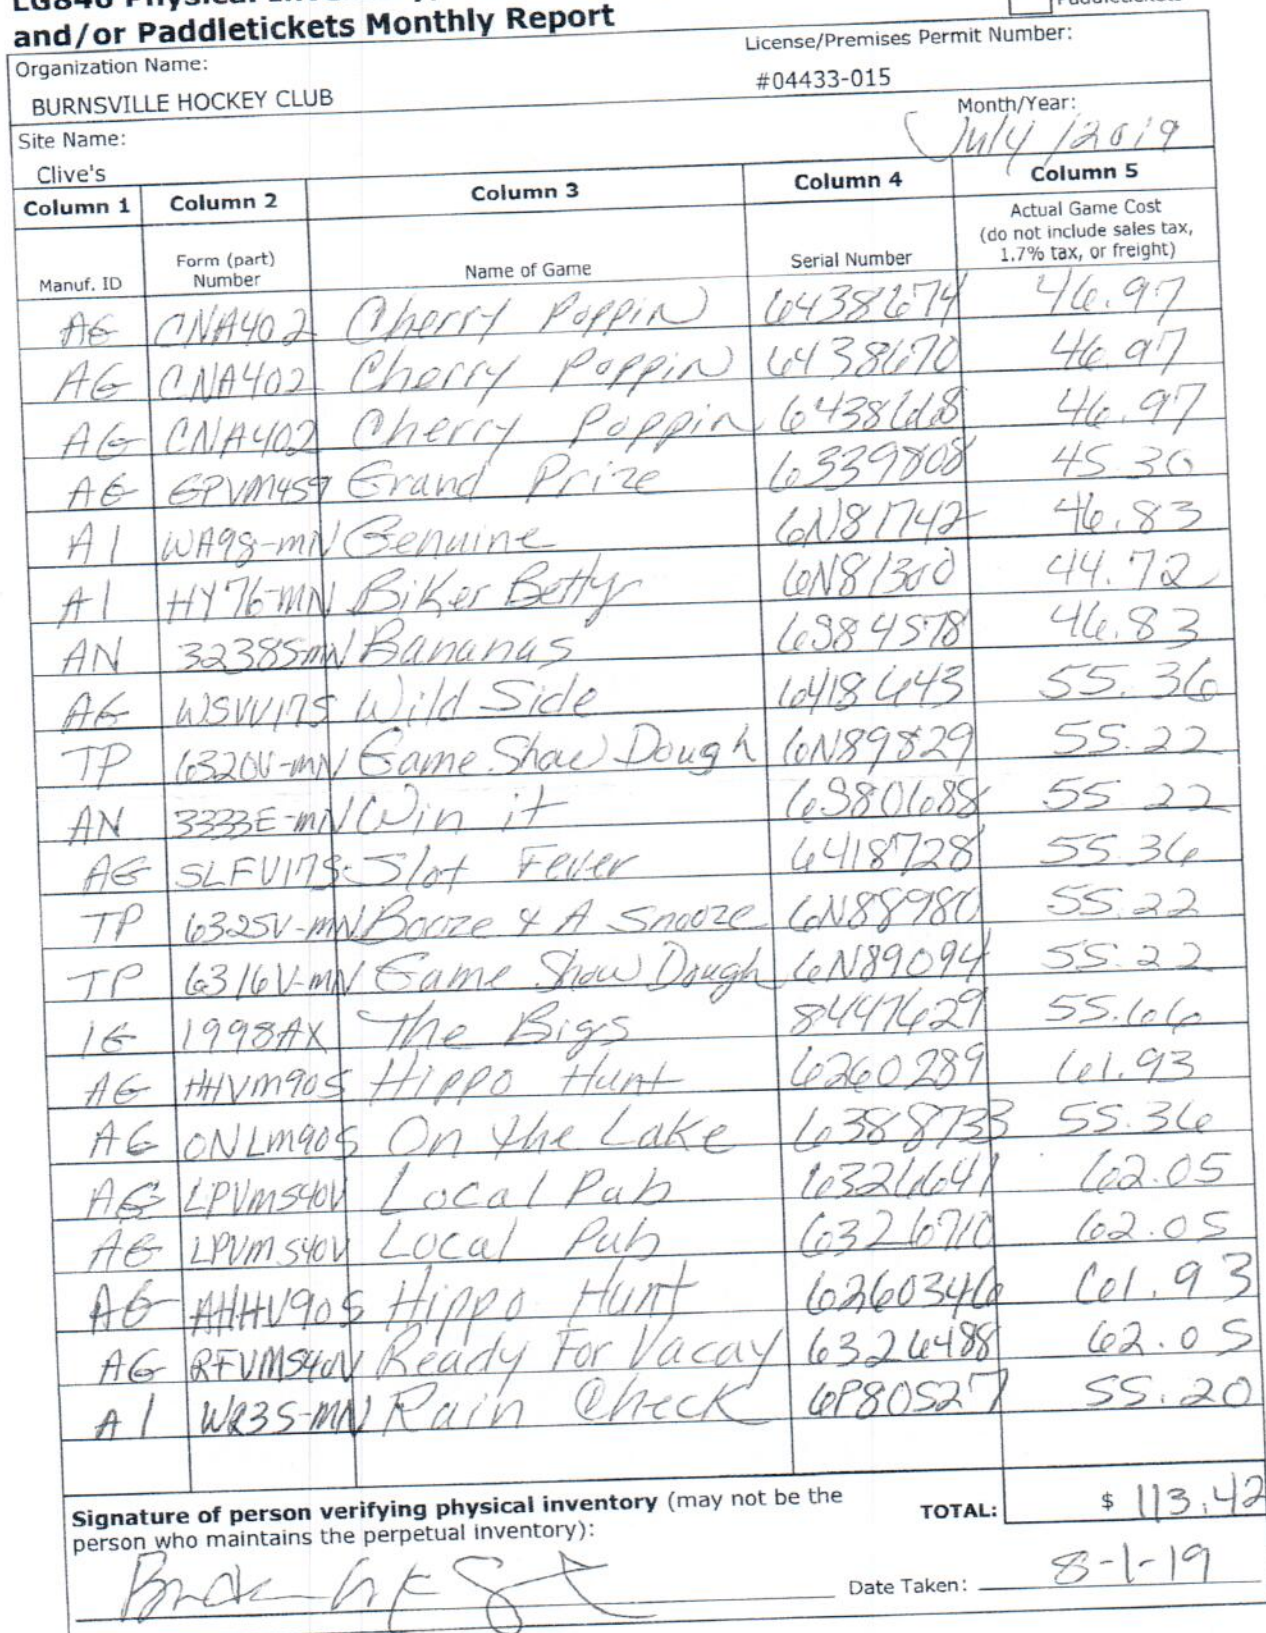 and/or Paddletickets Monthly Report
Organization Name:
License/Premises Permit Number:
BURNSVILLE HOCKEY CLUB
#04433-015
Site Name:
Month/Year:
Clive's
July /2019
Column 1 Column 2 Column 3 Column 4 Column 5
Manuf. ID Form (part) Number Name of Game Serial Number Actual Game Cost (do not include sales tax, 1.7% tax, or freight)
AG CNA402 Cherry Poppin 6438674 46.97
AG CNA402 Cherry Poppin 6438670 46.97
AG CNA402 Cherry Poppin 6438668 46.97
AG GPVM459 Grand Prize 6339808 45.36
A1 WA98-MN Genuine 6N81742 46.83
A1 HY76-MN Biker Betty 6N81300 44.72
AN 3238S-MN Bananas 6S84578 46.83
AG WSVV17S Wild Side 6418643 55.36
TP 6320V-MN Game Show Dough 6N89829 55.22
AN 3333E-MN Win it 6S80688 55 22
AG SLFV17S Slot Fever 6418728 55.36
TP 6325V-MN Booze & A Snooze 6N88980 55.22
TP 6316V-MN Game Show Dough 6N89094 55.22
IG 1998AX The Bigs 8447629 55.66
AG HHVM90S Hippo Hunt 6260289 61.93
AG ONLM90S On the Lake 6388733 55.36
AG LPVMS40V Local Pub 6326641 62.05
AG LPVMS40V Local Pub 6326710 62.05
AG AHHV90S Hippo Hunt 6260346 61.93
AG RFVMS40V Ready For Vacay 6326488 62.05
A1 WR3S-MN Rain Check 6P80527 55.20
Signature of person verifying physical inventory (may not be the
person who maintains the perpetual inventory):
TOTAL: $ 113.42
Date Taken: 8-1-19